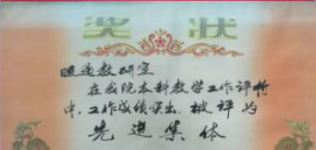 奖状
暖通教研室
在我院本科教学工作评价
中，工作成绩突出，被评为
先进集体